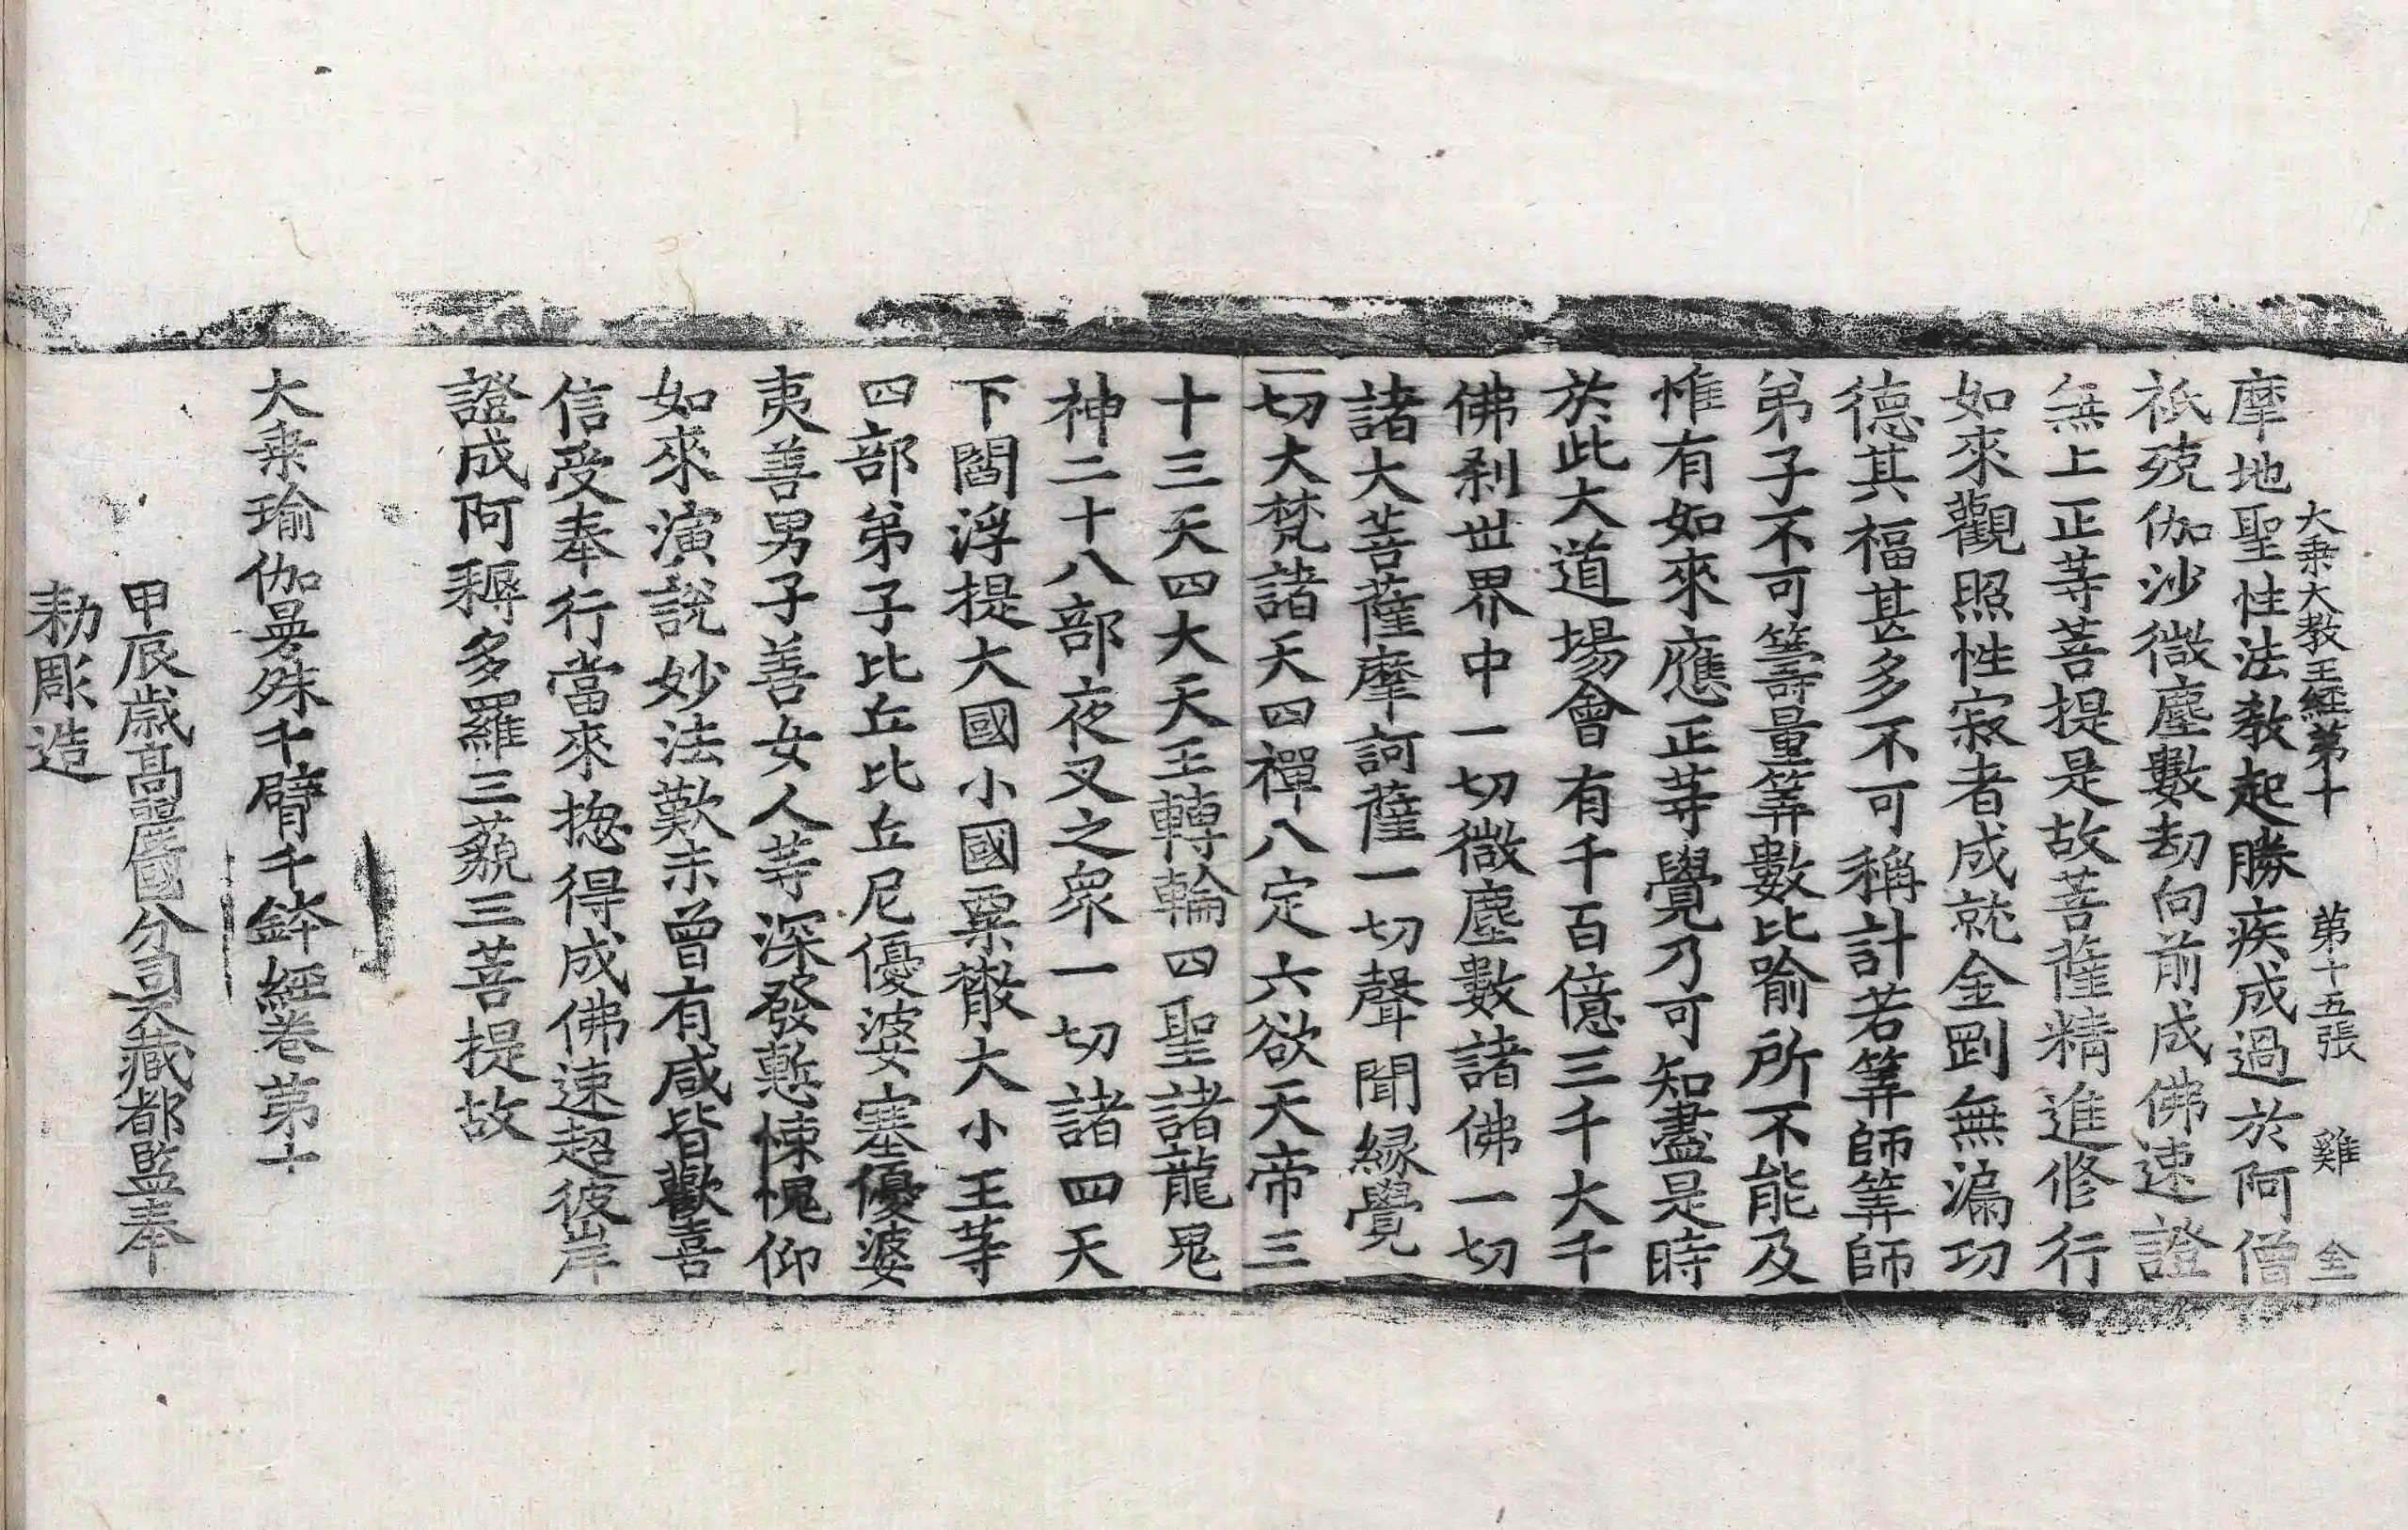 大乗大教王經第十　第十五張　雞　全
摩地聖性法教起勝疾成過於阿僧
祇殑伽沙微塵數劫向前成佛速證
無上正等菩提是故菩薩精進修行
如來觀照性寂者成就金剛無漏功
德其福甚多不可稱計若筭師筭師
弟子不可籌量筭數比喻所不能及
惟有如來應正等覺乃可知盡是時
於此大道場會有千百億三千大千
佛剎世界中一切微塵數諸佛一切
諸大菩薩摩訶薩一切聲聞緣覺
一切大梵諸天四禪八定六欲天帝三
十三天四大天王轉輪四聖諸龍鬼
神二十八部夜叉之衆一切諸四天
下閻浮提大國小國粟散大小王等
四部弟子比丘比丘尼優婆塞優婆
夷善男子善女人等深發慙悚愧仰
如來演說妙法歎未曾有咸皆歡喜
信受奉行當來揔得成佛速超彼岸
證成阿耨多羅三藐三菩提故
大乗瑜伽曼殊千臂千鉢經卷第十
甲辰歲高麗國分司大藏都監奉
勅彫造